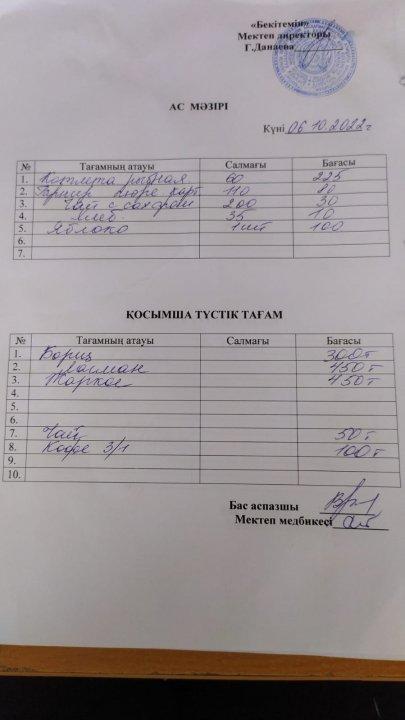 «Бекітемін»
Мектеп директоры
Г.Данаева
АС МӘЗІРІ
Күні 06 10.2022 г
№ Тағамның атауы Салмағы Бағасы
1. Котлета рыбная 60 225
2. Гарнир пюре карт 110 80
3. Чай с сахаром 200 30
4. Хлеб 35 10
5. Яблоко 1шт 100
6.
7.
ҚОСЫМША ТҮСТІК ТАҒАМ
№ Тағамның атауы Салмағы Бағасы
1. Борщ 300т
2. Лагман 450т
3. Жаркое 450т
4.
5.
6.
7. Чай 50т
8. Кофе 3/1 100т
9.
10.
Бас аспазшы
Мектеп медбикесі